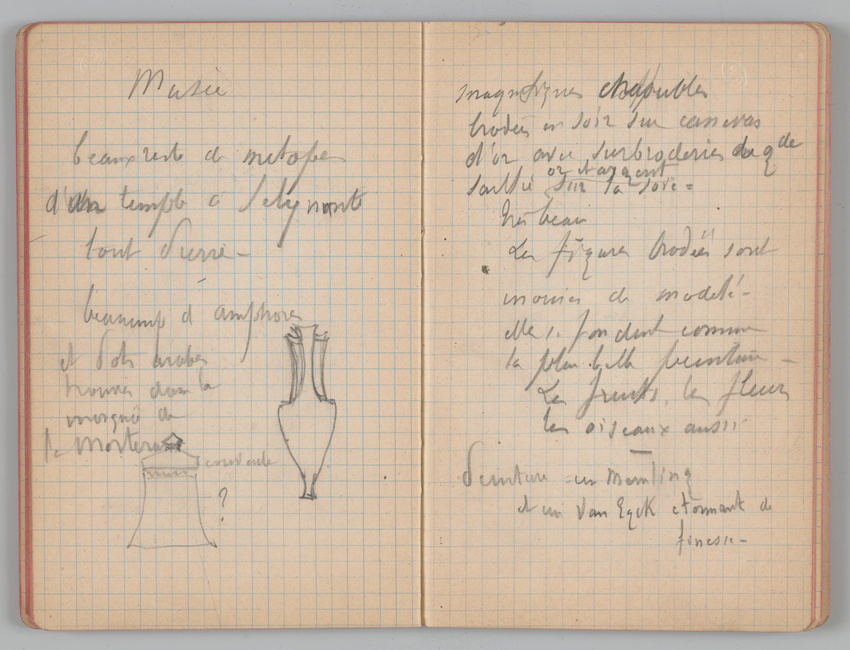 Musée
beaux reste de metopes
d'un temple a Selynonte
tout pierre -
beaucoup d amphores
et pots arabes
trouvés dans la
mosqué de
la Martorana
couvercle
?
magnifiques chasubles
brodées en soie sur canevas
d'or avec surbroderies de gde
or et argent
saillie sur la soie =
très beau
Les figures brodées sont
inouies de modelé -
elles se fondent comme
la plus belle peinture -
Les fruits, les fleurs
les oiseaux aussi
Peinture - un Memling
et un Van Eyck etonnant de
finesse -